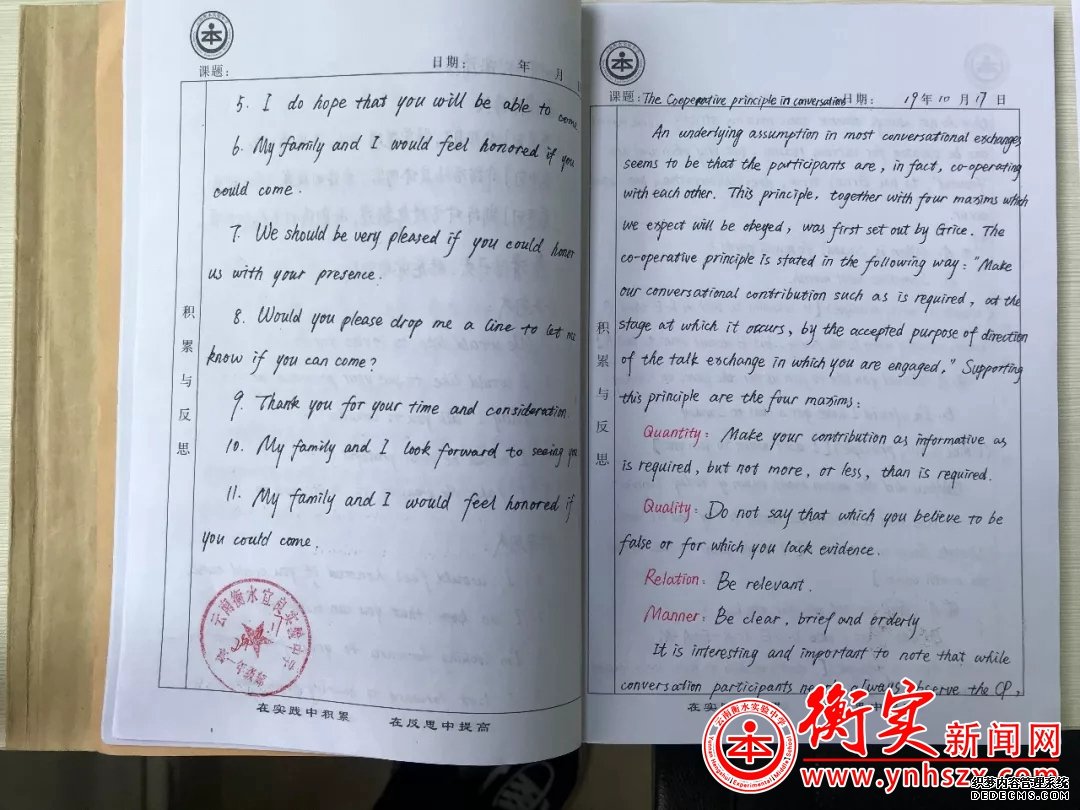 课题:
日期: 年 月
5. I do hope that you will be able to come
6. My family and I would feel honored if you
could come.
7. We should be very pleased if you could honor
us with your presence.
8. Would you please drop me a line to let me
know if you can come?
9. Thank you for your time and consideration.
10. My family and I look forward to seeing you
11. My family and I would feel honored if
you could come.
积累与反思
云南衡水宜良实验中学
在实践中积累 在反思中提高
课题: The Cooperative principle in conversation 日期: 19年10月17日
An underlying assumption in most conversational exchanges
seems to be that the participants are, in fact, co-operating
with each other. This principle, together with four maxims which
we expect will be obeyed, was first set out by Grice. The
co-operative principle is stated in the following way: "Make
our conversational contribution such as is required, at the
stage at which it occurs, by the accepted purpose of direction
of the talk exchange in which you are engaged." Supporting
this principle are the four maxims:
Quantity: Make your contribution as informative as
is required, but not more, or less, than is required.
Quality: Do not say that which you believe to be
false or for which you lack evidence.
Relation: Be relevant.
Manner: Be clear, brief and orderly
It is interesting and important to note that while
conversation participants always observe the CP,
积累与反思
在实
中提高
云南衡水实验中学
本
衡实新闻网
www.ynhszx.com
织梦内容管理系统
DEDECMS.COM